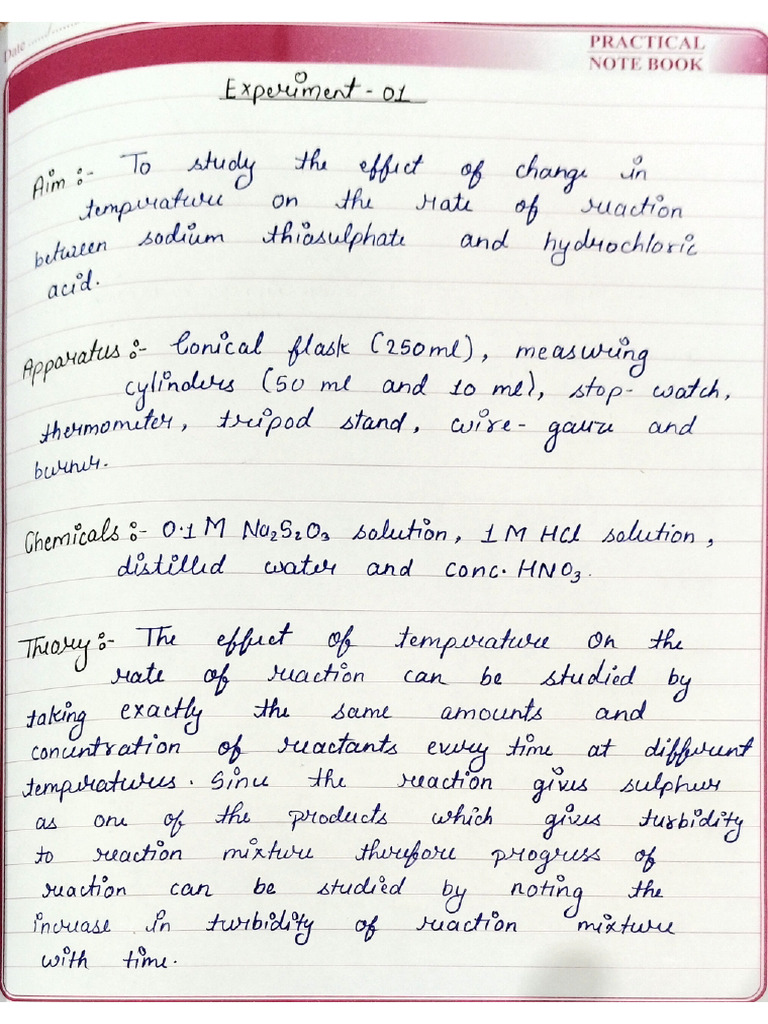 Date ...../.....
PRACTICAL
NOTE BOOK
Experiment - 01
Aim :- To study the effect of change in
temperature on the rate of reaction
between sodium thiosulphate and hydrochloric
acid.
Apparatus :- Conical flask (250ml), measuring
cylinders (50 ml and 10 ml), stop-watch,
thermometer, tripod stand, wire-gauze and
burner.
Chemicals :- 0.1 M Na₂S₂O₃ solution, 1 M HCl solution,
distilled water and conc. HNO₃.
Theory :- The effect of temperature on the
rate of reaction can be studied by
taking exactly the same amounts and
concentration of reactants every time at different
temperatures. Since the reaction gives sulphur
as one of the products which gives turbidity
to reaction mixture therefore progress of
reaction can be studied by noting the
increase in turbidity of reaction mixture
with time.